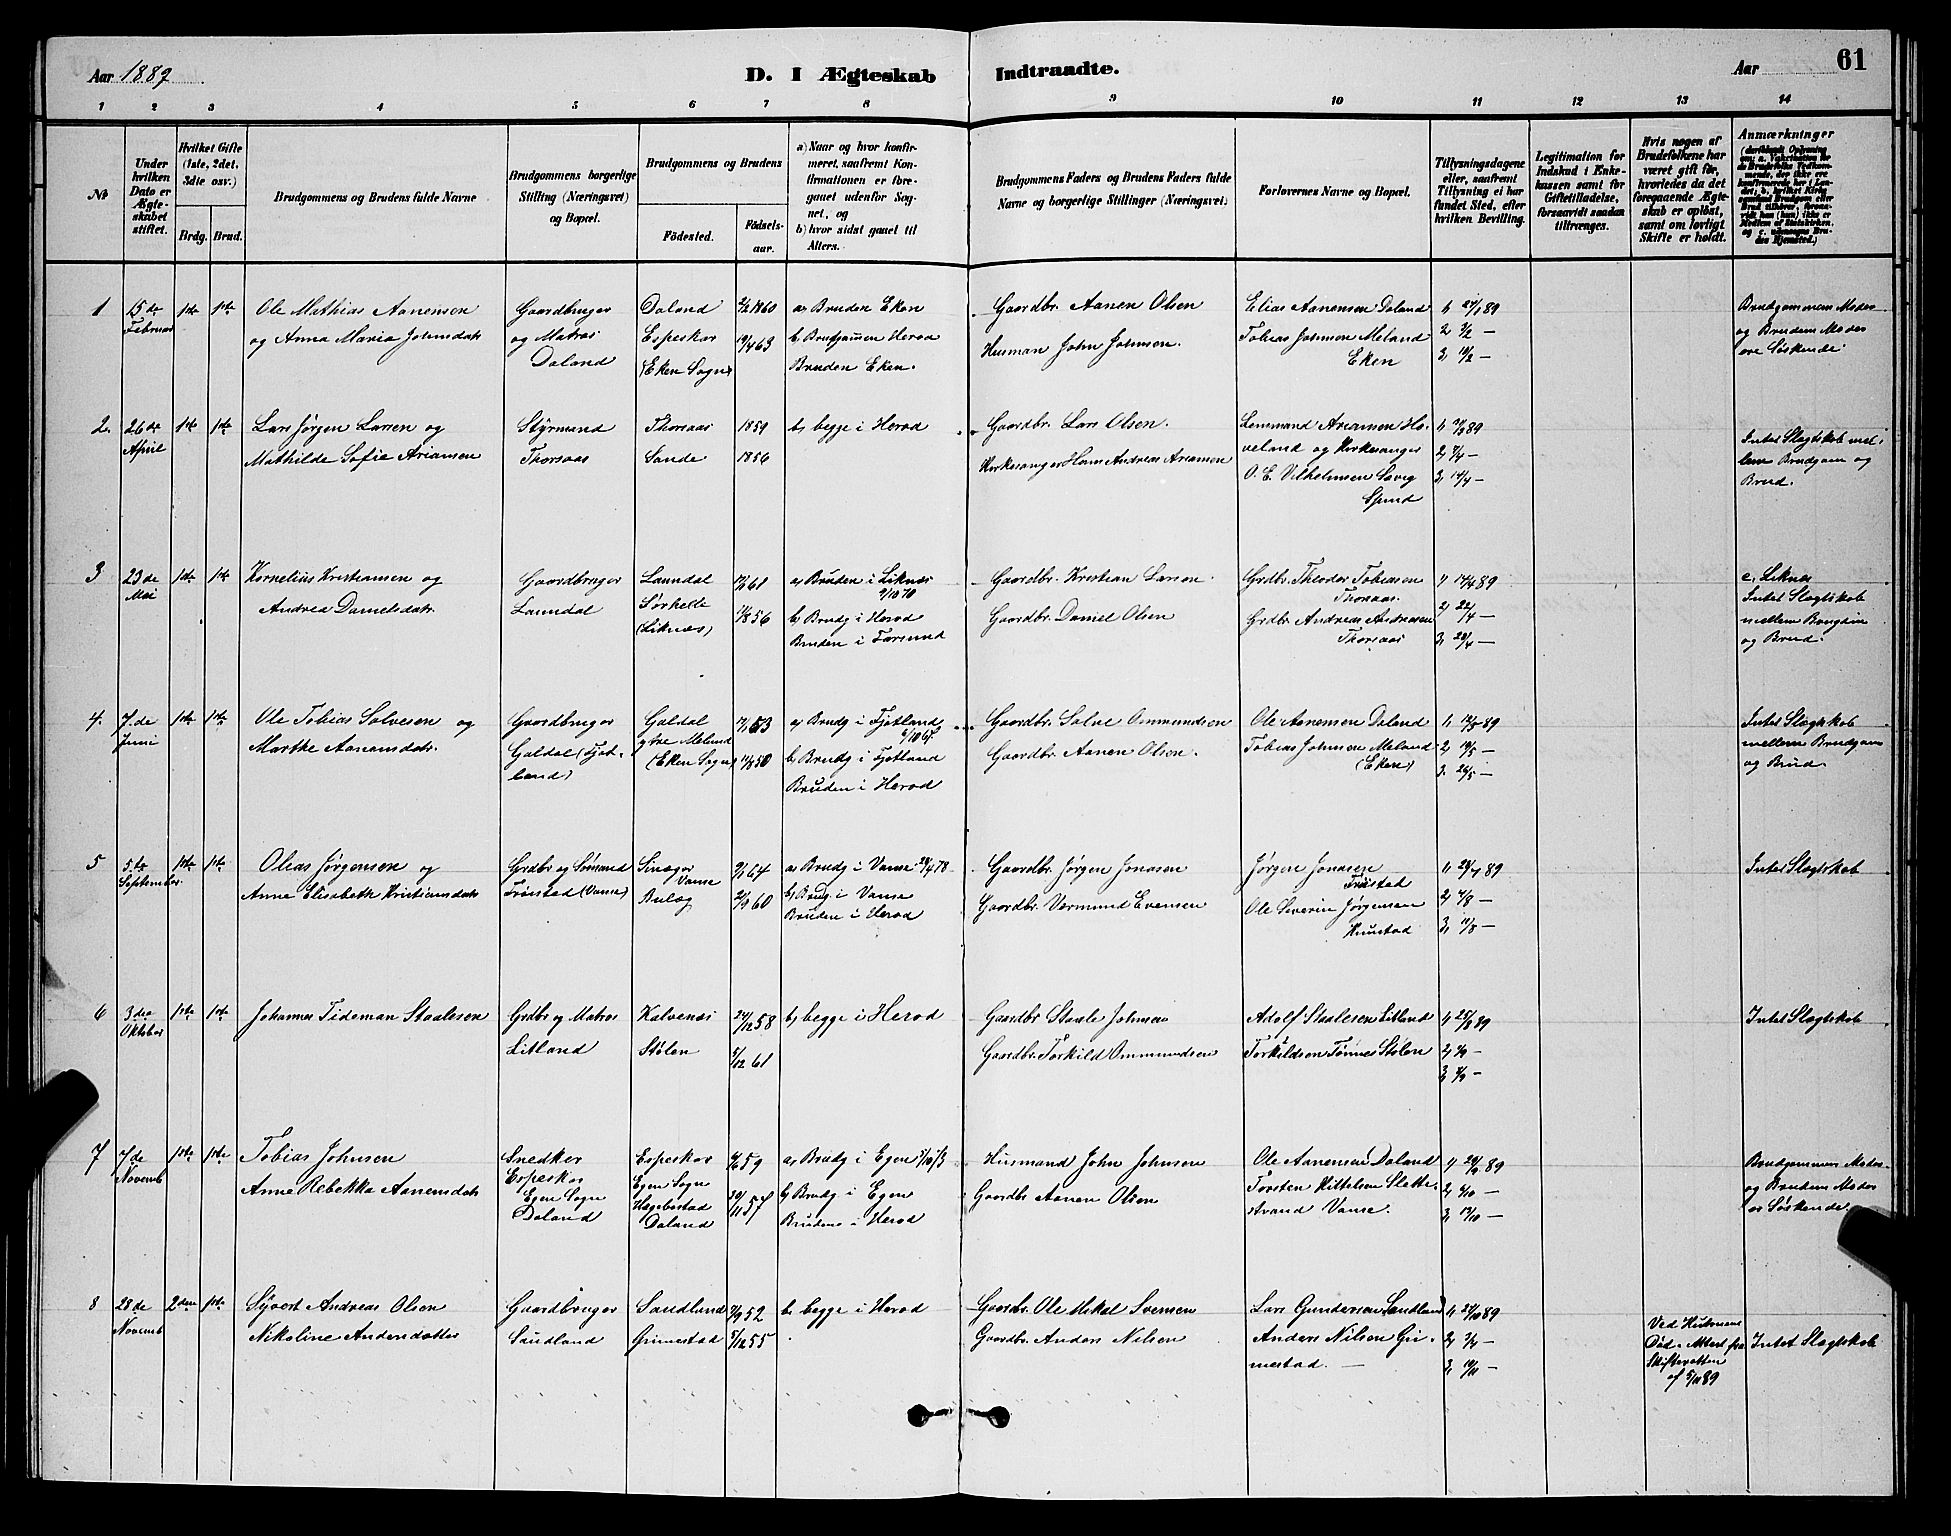 Aar 1889
D. I Ægteskab Indtraadte.
Aar
61
1 2 3 4 5 6 7 8 9 10 11 12 13 14
№
Under hvilken Dato er Ægteskabet stiftet.
Hvilket Gifte (1ste, 2det, 3die osv.)
Brdg. Brud.
Brudgommens og Brudens fulde Navne
Brudgommens borgerlige Stilling (Næringsvei) og Bopæl.
Brudgommens og Brudens
Födested.
Födselsaar.
a) Naar og hvor konfirmeret, saafremt Konfirmationen er foregaaet udenfor Sognet, og
b) hvor sidst gaaet til Alters.
Brudgommens Faders og Brudens Faders fulde Navne og borgerlige Stillinger (Næringsvei)
Forlovernes Navne og Bopæl.
Tillysningsdagene eller, saafremt Tillysning ei har fundet Sted, efter hvilken Bevilling.
Legitimation for Indskud i Enkekassen samt for Giftetilladelse, forsaavidt saadan tiltrænges.
Hvis nogen af Brudefolkene har været gift før, hvorledes da det foregaaende Ægteskab er oplöst, samt om lovligt Skifte er holdt.
Anmærkninger
1
15de Februar
1ste 1ste
Ole Mathias Aanensen
og Anna Maria Johnsdatr
Gaardbruger
og Matros
Daland
Daland
Espeskor
(Eken Sogn)
2/2 1860
19/4 63
a) Bruden Eken
b) Brudgommen Herod
Bruden Eken.
Gaardbr. Aanen Olsen
Husman John Johnsen.
Elias Aanensen Daland
Tobias Johnsen Meland
Eken
1) 27/1 89
2 3/2 —
3) 10/2 —
Brudgommens Moder
og Brudens Moder
ere Søskende
2.
26de April
1ste 1ste
Lars Jørgen Larsen og
Mathilde Sofie Ariansen
Styrmand
Thorsaas
Thorsaas
Sande
1859
1856
b) begge i Herod
Gaardbr. Lars Olsen.
Kirkesanger Hans Andreas Ariansen
Lensmand Ariansen Ho
veland og Kirkesanger
O. E. Vilhelmsen
Spind
1) 31/3 89
2) 7/4 —
3) 14/4 —
Intet Slægtskab mel
lem Brudgom og
Brud.
3
23de Mai
1ste 1ste
Kornelius Kristiansen og
Andrea Danielsdatr
Gaardbruger
Laundal
Laundal
Sørhelle
(Liknes)
61
56
a) Bruden i Liknes
9/10 70
b) Brudg i Herod
Bruden i Farsund
Gaardbr. Kristian Larsen.
Gaardbr. Daniel Olsen
Grdbr. Theodor Tobiassen
Thorsaas.
Grdbr. Andreas Andreasen
Thorsaas
1) 14/4 89
2) 22/4 —
3) 28/4 —
c, Liknes
Intet Slægtskab
mellem
og Brud.
4.
7.de Juni
1ste 1ste
Ole Tobias Salvesen og
Marthe Aanensdatr.
Gaardbruger
Galdal (Fjot-
land)
Galdal
ytre Meland
(Eken Sogn)
53
50
a) Brudg i Fjotland
b) Brudg i Fjotland
Bruden i Herod
Gaardbr. Salve Ommundsen
Gaardbr. Aanen Olsen.
Ole Aanensen Daland
Tobias Johnsen Meland
(Eken)
1) 12/5 89
2) 19/5 —
3. 26/5 —
Intet Slægtskab
mellem Brudgom
og Brud.
5
5te September
1ste 1ste
Olias Jørgensen og
Anne Elisabeth Kristiansdatr
Grdbr og Sømand
Frøistad (Vanse)
Vanse
64
60
a) Brudg i Vanse 28/4 78
b) Brudg. i Vanse
Bruden i Herod
Gaardbr. Jørgen Jonasen
Gaardbr. Vermund Evensen
Jørgen Jonasen
Frøistad
Ole Severin Jørgensen
1) 28/7 89
2) 4/8 —
3) 11/8 —
Intet Slægtskab
6
3die Oktober
1ste 1ste
Johannes Tideman Staalesen
Grdbr og Matros
Litland
Kalvenæs
Stølen
24/12 58
5/12 61
b) begge i Herod
Gaardbr Staale Johnsen
Gaardbr. Torkild Ommundsen
Adolf Staalesen Litland
Torkildsen Tønnes Stølen
1) 25/8 89
2) 1/9 —
3) 8/9 —
Intet Slægtskab
7
7de Novemb
1ste 1ste
Tobias Johnsen
Anne Rebekka Aanensdatr
Snedker
Espeskor
Egen Sogn
Daland
Espeskor
Egen Sogn
Hægebostad
Daland
59
20/11 57
a) Brudg i Egen 5/10 73
b) Brudg i Egen
Brudens i Herod
Husmand John Johnsen
Gaardbr Aanen Olsen
Ole Aanensen Daland
Torsten Kittelsen Slette-
strand Vanse.
1) 29/9 89
2) 6/10 —
3) 13/10 —
Brudgommens Moder
og Brudens Moder
er Søskende
8
28de Novemb
2den 1ste
Syvert Andreas Olsen
Nikoline Andersdatter
Gaardbruger
Sandland
Sandland
Grimestad
7/9 52
5/12 55
b) begge i Herod
Gaardbr. Ole Mikal Svensen
Gaardbr Anders Nilsen
Lars Gundersen Sandland
Anders Nilsen Gri-
mestad. —
1) 27/10 89
2) 3/11 —
3) 10/11 —
Ved Hustruens
Død. Attest fra
Skifteretten
af 5/11 89
Intet Slægtskab